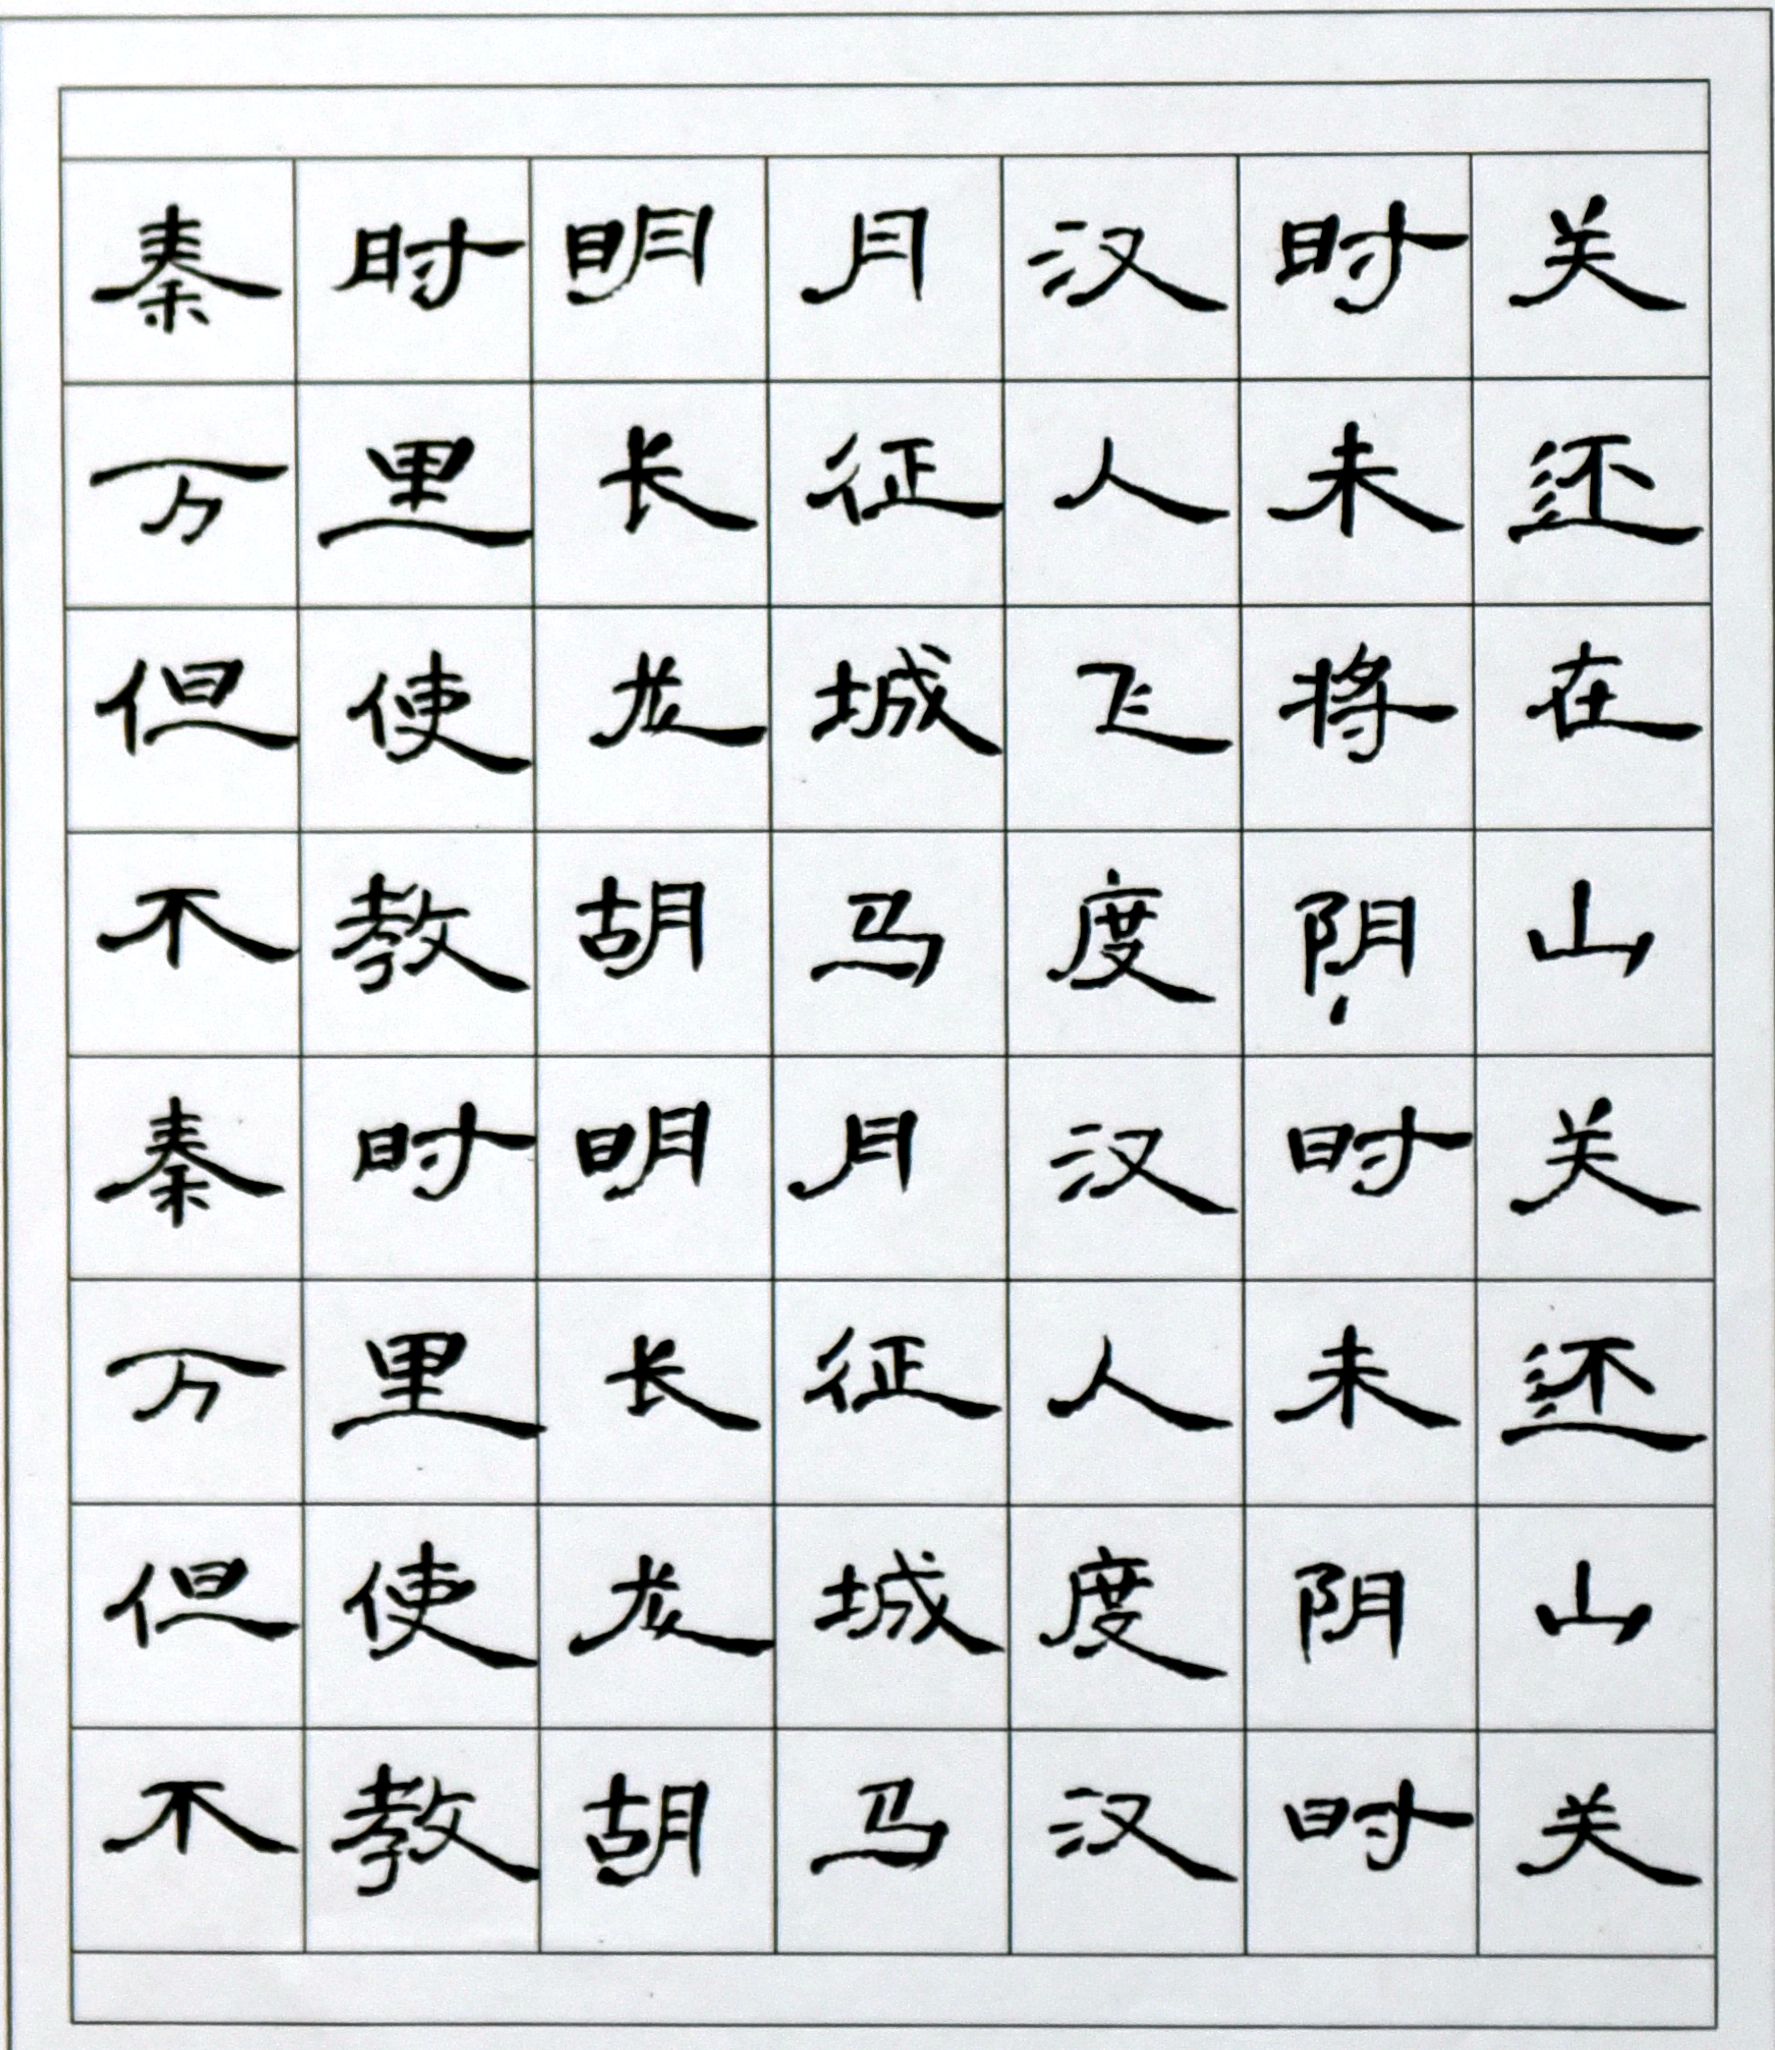 秦时明月汉时关
万里长征人未还
但使龙城飞将在
不教胡马度阴山
秦时明月汉时关
万里长征人未还
但使龙城度阴山
不教胡马汉时关